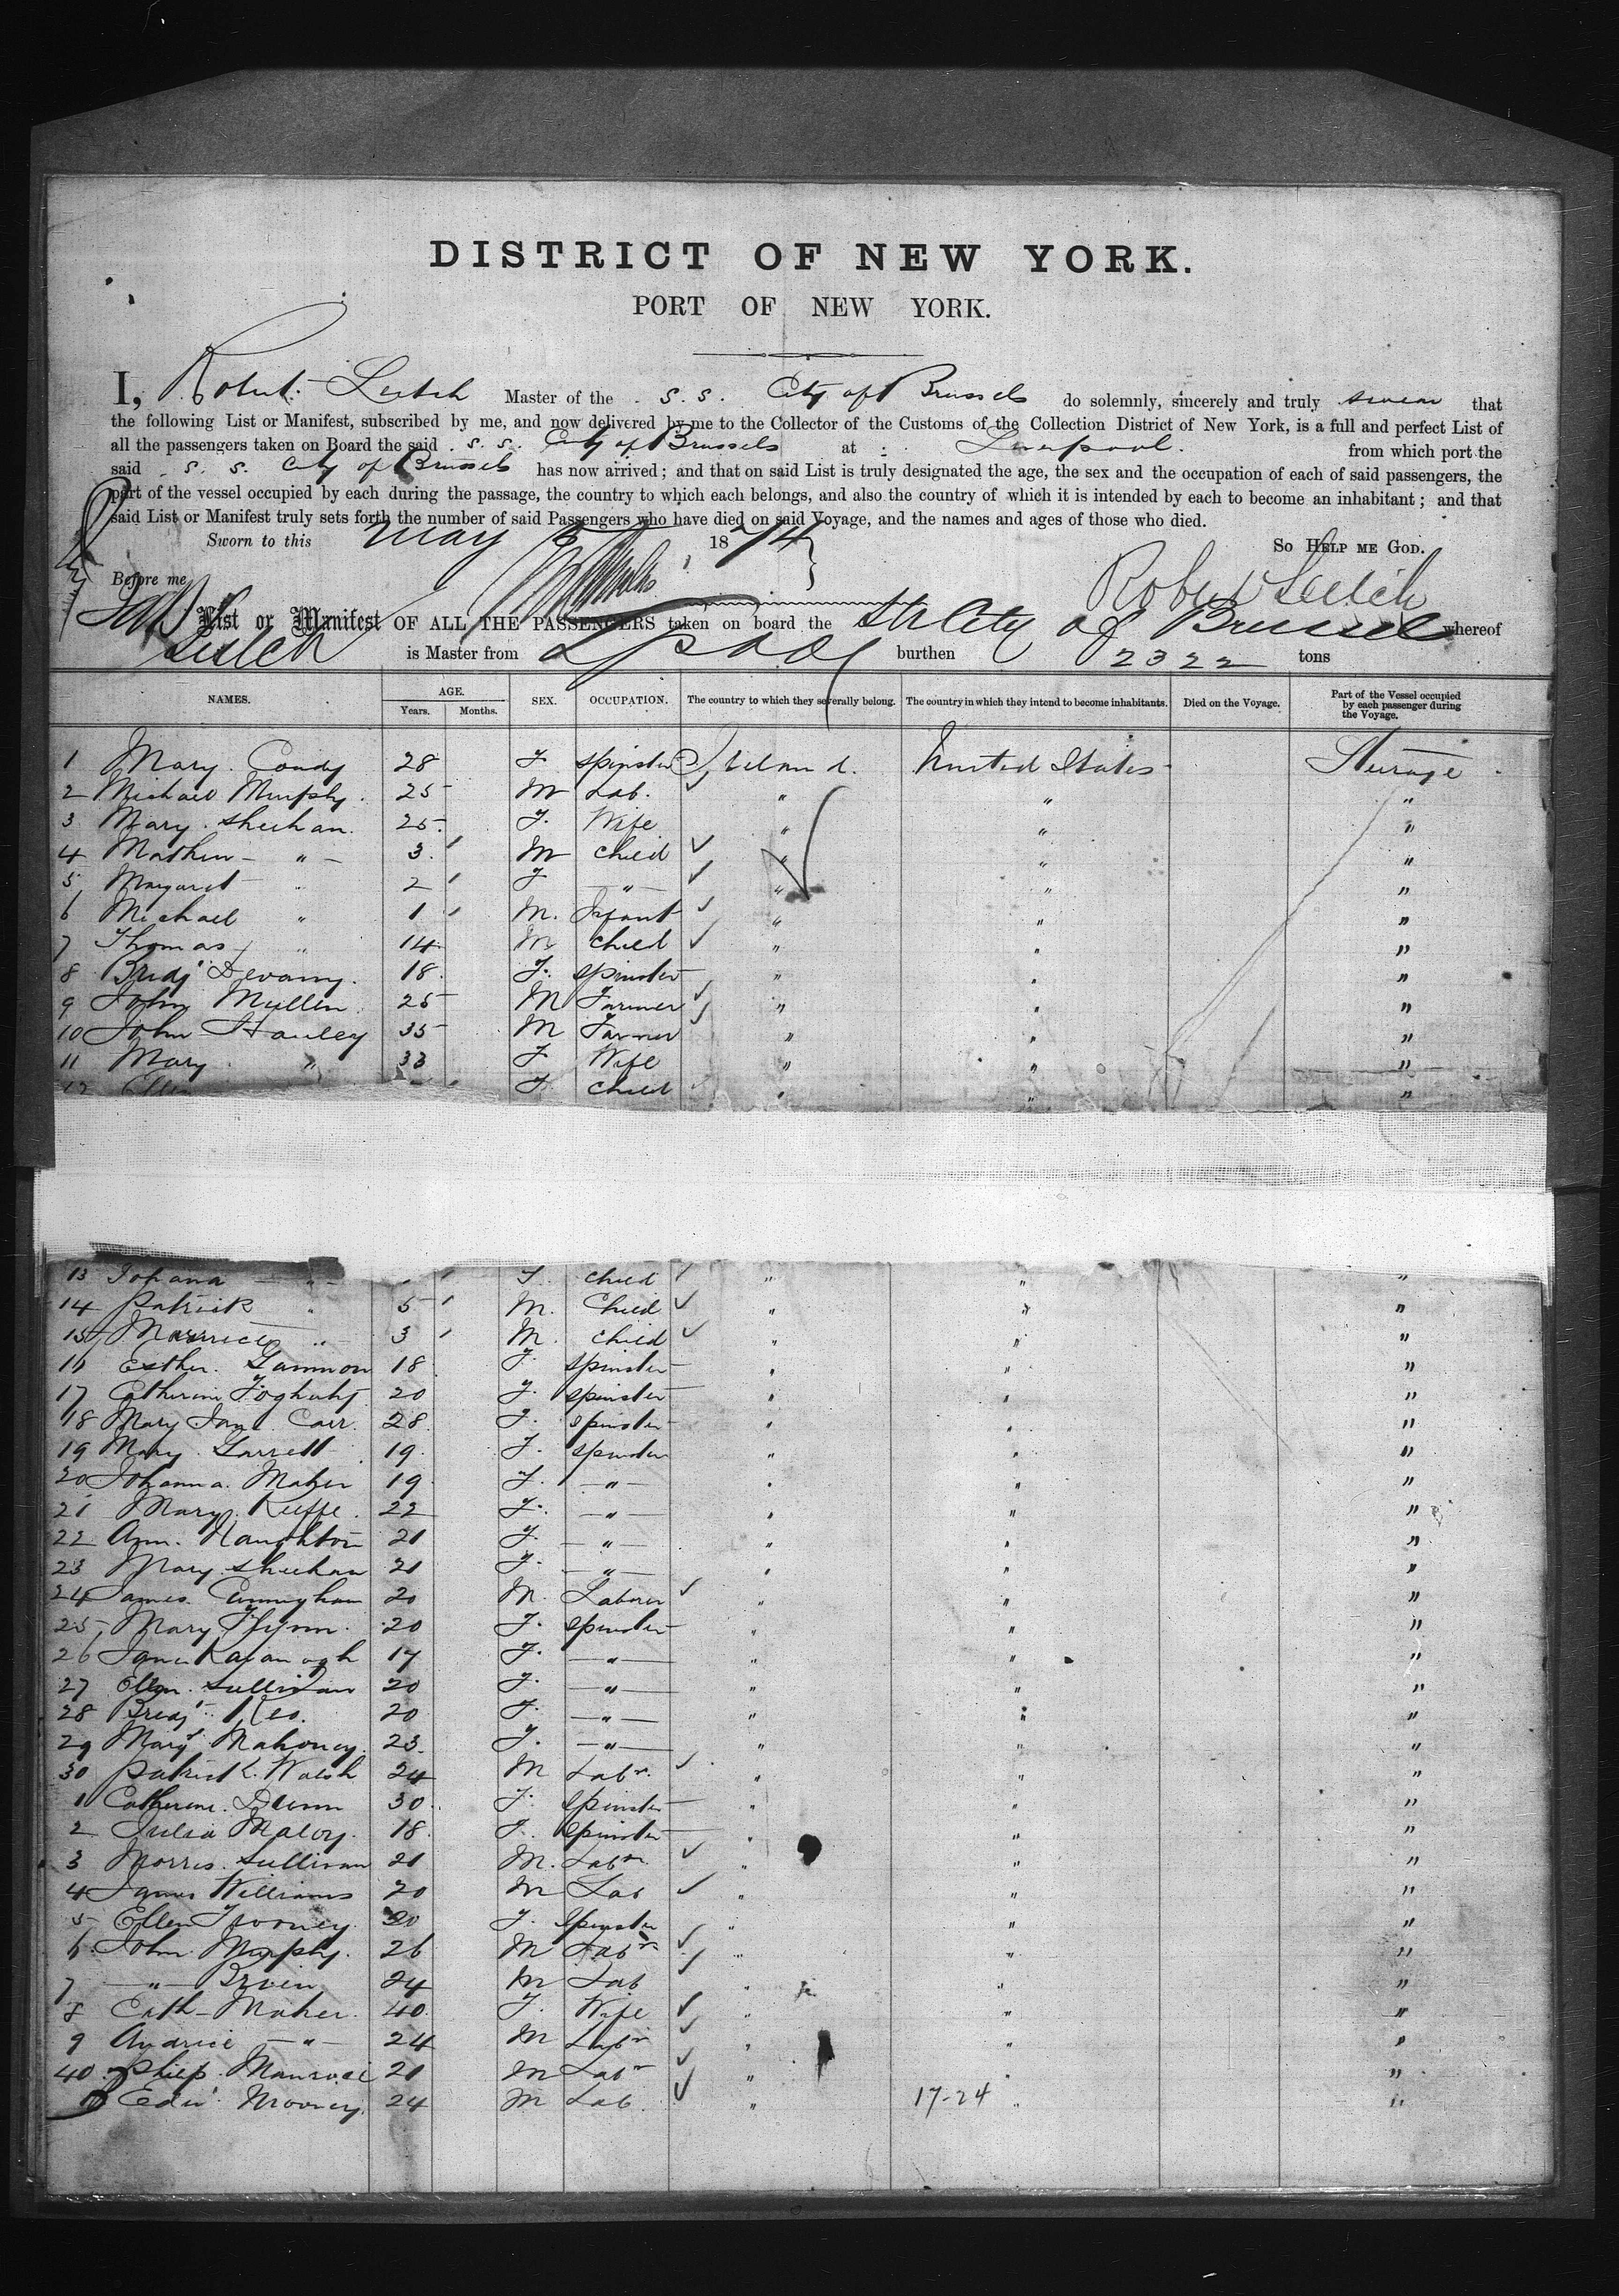 DISTRICT OF NEW YORK.
PORT OF NEW YORK.
I, Robert Leitch Master of the S. S. City of Brussels do solemnly, sincerely and truly swear that
the following List or Manifest, subscribed by me, and now delivered by me to the Collector of the Customs of the Collection District of New York, is a full and perfect List of
all the passengers taken on Board the said S. S. City of Brussels at Liverpool. from which port the
said S. S. City of Brussels has now arrived; and that on said List is truly designated the age, the sex and the occupation of each of said passengers, the
part of the vessel occupied by each during the passage, the country to which each belongs, and also the country of which it is intended by each to become an inhabitant; and that
said List or Manifest truly sets forth the number of said Passengers who have died on said Voyage, and the names and ages of those who died.
Sworn to this May 5 1874 So HELP ME GOD.
Before me Robert Leitch
List or Manifest OF ALL THE PASSENGERS taken on board the Str City of Brussels whereof
Leitch is Master from Lpool burthen 2322 tons
NAMES. AGE. Years. Months. SEX. OCCUPATION. The country to which they severally belong. The country in which they intend to become inhabitants. Died on the Voyage. Part of the Vessel occupied by each passenger during the Voyage.
1 Mary Condy 28 F Spinster Ireland. United States Steerage
2 Michael Murphy. 25 M Lab. " " "
3 Mary Sheehan. 25. F. Wife " " "
4 Mathew " 3. M Child " " "
5 Margaret " 2 F " " " "
6 Michael " 1 M. Infant " " "
7 Thomas " 14 M Child " " "
8 Bridj Devany. 18. F. Spinster " " "
9 John Mullen 25 M Farmer " " "
10 John Hauley 35 M Farmer " " "
11 Mary " 33 F Wife " " "
12 Ellen F Child " " "
13 Johana " F. Child " " "
14 Patrick " 5 M. Child " " "
15 Maurice " 3 M. Child " " "
16 Esther. Gammon 18 F. Spinster " " "
17 Catherine 20 F. Spinster " " "
18 Mary Jane Carr. 28. F. Spinster " " "
19 Mary Garrett 19. F. Spinster " " "
20 Johanna. Maher 19 F. " " " "
21 Mary Keeffe. 22 F. " " " "
22 Ann. Naughton 21 F. " " " "
23 Mary Sheehan 21 F. " " " "
24 James. Cunnigham 20 M. Laborer " " "
25 Mary Flynn. 20 F. Spinster " " "
26 Jane Kavanagh 17 F. " " " "
27 Ellen. Sullivan 20 F. " " " "
28 Bridj Keo. 20 F. " " " "
29 Mary Mahoney. 23. F. " " " "
30 Patrick. Walsh 24 M Labr. " " "
1 Catherine. Dunn 30. F. Spinster " " "
2 Julia Maloy. 18. F. Spinster " " "
3 Morris. Sullivan 21 M. Labr. " " "
4 James Williams 20 M Lab " " "
5 Ellen Twomey. 20 F. Spinster " " "
6 John Murphy. 26 M Labr " " "
7 " 24 M Lab " " "
8 Cath Maher. 40. F. Wife " " "
9 " 24 M Labr " " "
40 21 M Labr " " "
1 Edw. Mooney. 24 M Lab. " 17-24 " "